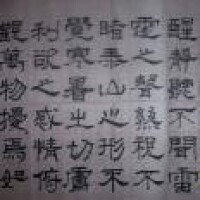 醒靜聽不聞雷
霆之聲熟視不
睹泰山之形不
覺寒暑之切
利欲之感情俯
觀萬物擾焉如